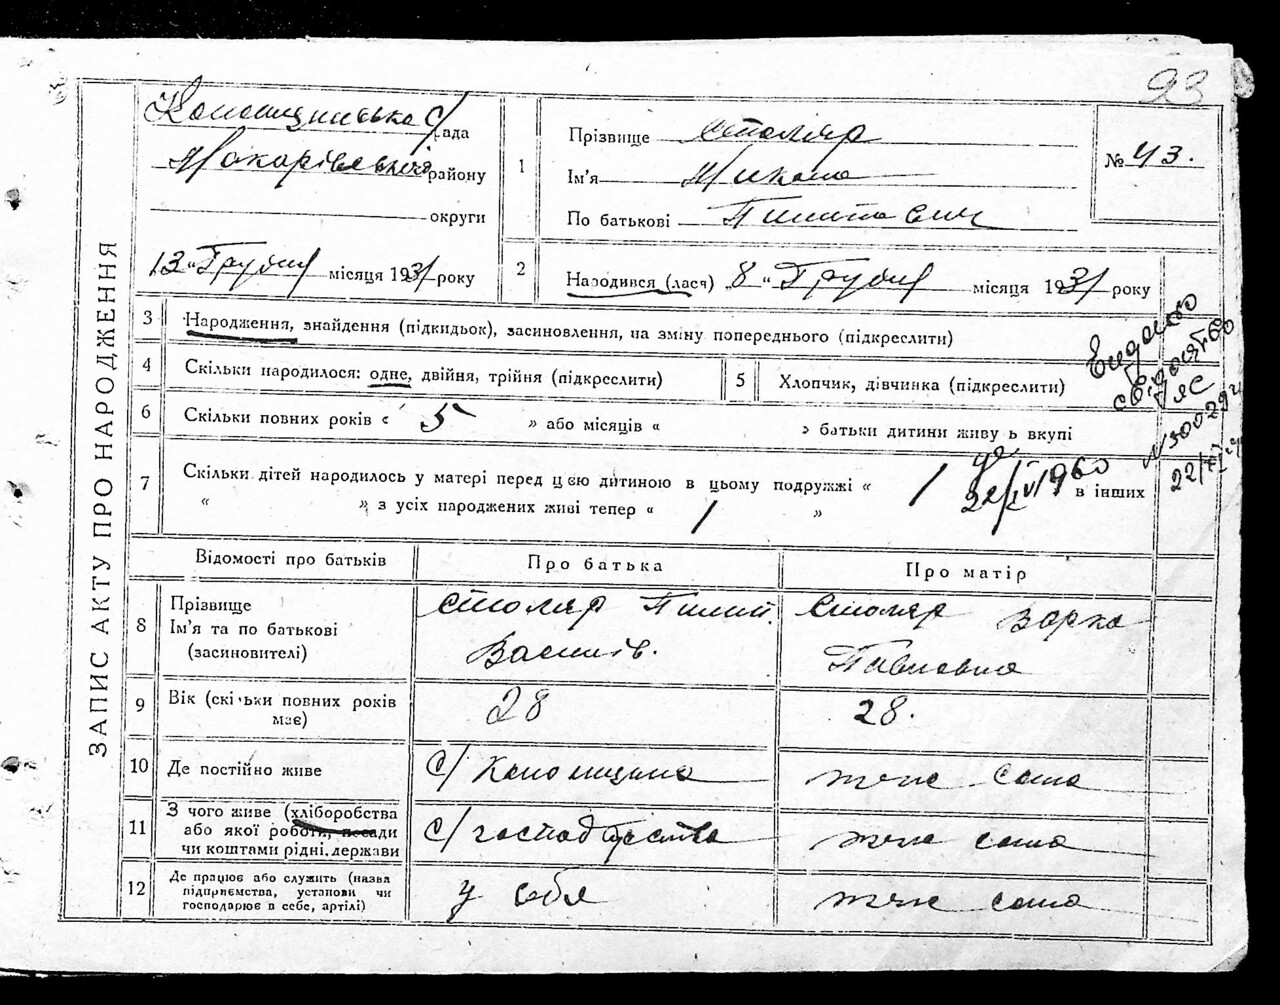 93
ЗАПИС АКТУ ПРО НАРОДЖЕННЯ
Копощинська С/Рада
Макарівський району
округи
13 "Грудня місяця 1931 року
1
Прізвище Столяр
Ім'я Микола
По батькові Пилипович
№ 43.
2
Народився (лася) „8 " Грудня місяця 1931 року
3
Народження, знайдення (підкидьок), засиновлення, на зміну попереднього (підкреслити)
4
Скільки народилося: одне, двійня, трійня (підкреслити)
5
Хлопчик, дівчинка (підкреслити)
6
Скільки повних років « 5 » або місяців « » батьки дитини живуть вкупі
7
Скільки дітей народилось у матері перед цією дитиною в цьому подружжі « 1 в інших
« » з усіх народжених живі тепер « 1 »
22/IV 1960
свідоцтво
22/
Відомості про батьків
Про батька
Про матір
8
Прізвище
Ім'я та по батькові
(засиновителі)
Столяр Пилип.
Василів.
Столяр Варка
Павловна
9
Вік (скільки повних років
має)
28
28.
10
Де постійно живе
С/ Копощина
теж сама
11
З чого живе (хліборобства
або якої роботи, посади
чи коштами рідні, держави
С/ господарства
теж сама
12
Де працює або служить (назва
підприємства, установи чи
господарює в себе, артілі)
у себя
теж сама